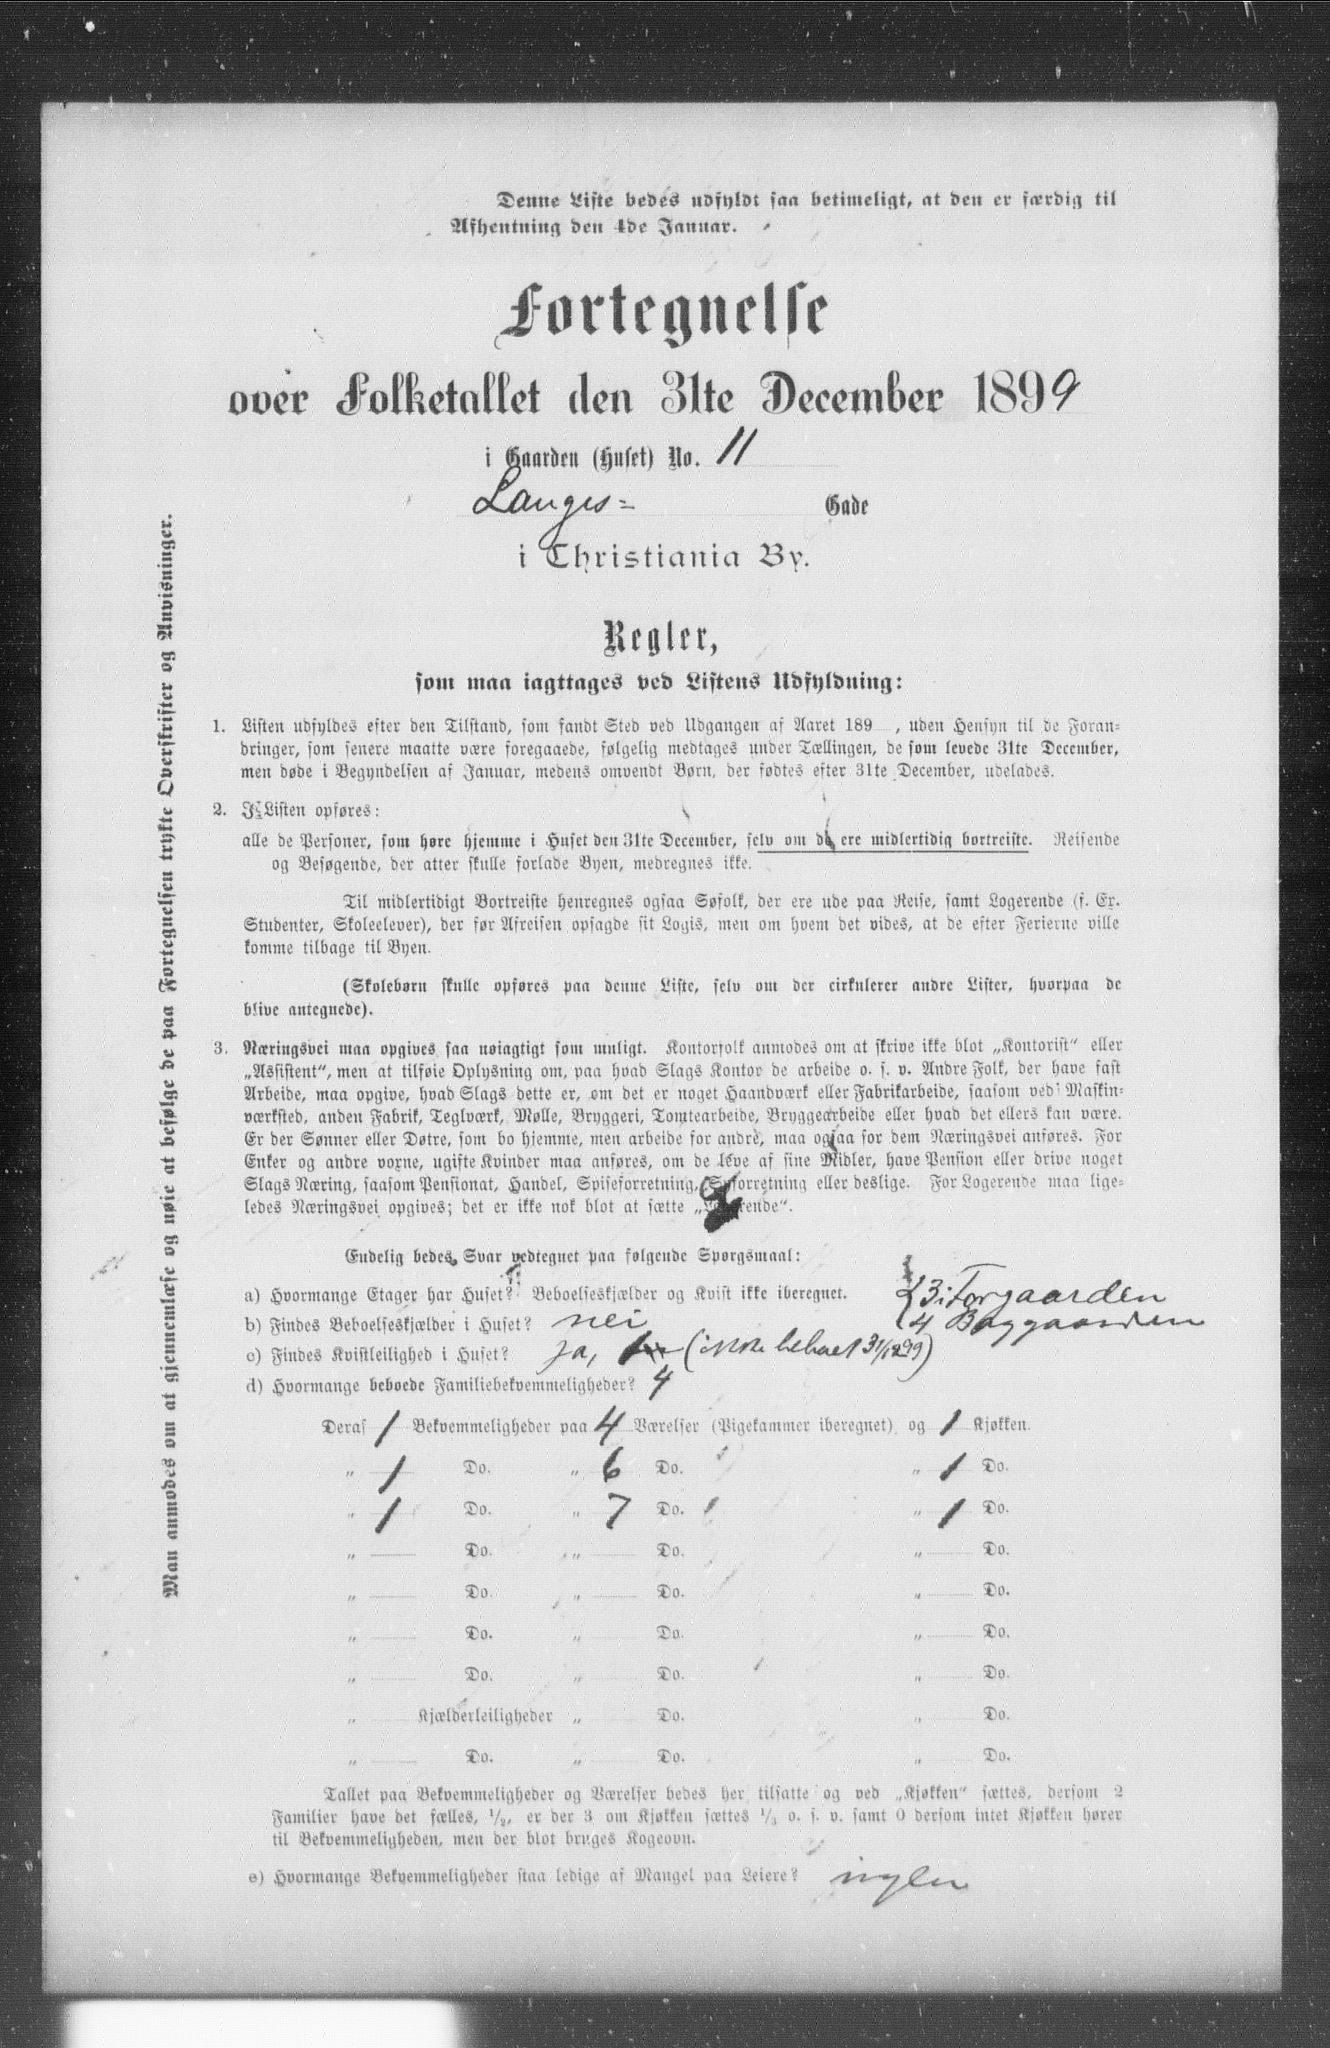 Denne Liste bedes udfyldt saa betimeligt, at den er færdig til
Afhentning den 4de Januar.
Fortegnelse
over Folketallet den 31te December 1899
i Gaarden (Huset) No. 11
Langes= Gade
i Christiania By.
Regler,
som maa iagttages ved Listens Udfyldning:
1. Listen udfyldes efter den Tilstand, som fandt Sted ved Udgangen af Aaret 189 , uden Hensyn til de Foran-
dringer, som senere maatte være foregaaede, følgelig medtages under Tællingen, de som levede 31te December,
men døde i Begyndelsen af Januar, medens omvendt Børn, der fødtes efter 31te December, udelades.
2. I Listen opføres:
alle de Personer, som høre hjemme i Huset den 31te December, selv om de ere midlertidig bortreiste. Reisende
og Besøgende, der atter skulle forlade Byen, medregnes ikke.
Til midlertidigt Bortreiste henregnes ogsaa Søfolk, der ere ude paa Reise, samt Logerende (f. Ex.
Studenter, Skoleelever), der før Afreisen opsagde sit Logis, men om hvem det vides, at de efter Ferierne ville
komme tilbage til Byen.
(Skolebørn skulle opføres paa denne Liste, selv om der cirkulerer andre Lister, hvorpaa de
blive antegnede).
3. Næringsvei maa opgives saa nøiagtigt som muligt. Kontorfolk anmodes om at skrive ikke blot „Kontorist" eller
„Assistent", men at tilføie Oplysning om, paa hvad Slags Kontor de arbeide o. s. v. Andre Folk, der have fast
Arbeide, maa opgive, hvad Slags dette er, om det er noget Haandværk eller Fabrikarbeide, saasom ved Maskin-
værksted, anden Fabrik, Teglværk, Mølle, Bryggeri, Tomtearbeide, Bryggearbeide eller hvad det ellers kan være.
Er der Sønner eller Døtre, som bo hjemme, men arbeide for andre, maa ogsaa for dem Næringsvei anføres. For
Enker og andre voxne, ugifte Kvinder maa anføres, om de leve af sine Midler, have Pension eller drive noget
Slags Næring, saasom Pensionat, Handel, Spiseforretning, Syforretning eller deslige. For Logerende maa lige-
ledes Næringsvei opgives; det er ikke nok blot at sætte „Logerende".
Endelig bedes Svar vedtegnet paa følgende Spørgsmaal:
a) Hvormange Etager har Huset? Beboelseskjælder og Kvist ikke iberegnet. 3 i Forgaarden
4 Baggaarden
b) Findes Beboelseskjælder i Huset? nei
c) Findes Kvistleilighed i Huset? ja, (ikke beboet 31/12 99)
d) Hvormange beboede Familiebekvemmeligheder? 4
Deraf 1 Bekvemmeligheder paa 4 Værelser (Pigekammer iberegnet) og 1 Kjøkken.
„ 1 Do. „ 6 Do. „ 1 Do.
„ 1 Do. „ 7 Do. „ 1 Do.
„ Do. „ Do. „ Do.
„ Do. „ Do. „ Do.
„ Do. „ Do. „ Do.
„ Do. „ Do. „ Do.
„ Kjælderleiligheder „ Do. „ Do.
„ Do. „ Do. „ Do.
Tallet paa Bekvemmeligheder og Værelser bedes her tilsatte og ved „Kjøkken" sættes, dersom 2
Familier have det fælles, 1/2, er der 3 om Kjøkken sættes 1/3 o. s. v. samt 0 dersom intet Kjøkken hører
til Bekvemmeligheden, men der blot bruges Kogeovn.
e) Hvormange Bekvemmeligheder staa ledige af Mangel paa Leiere? ingen
Man anmodes om at gjennemlæse og nøie at befølge de paa Fortegnelsen trykte Overskrifter og Anvisninger.